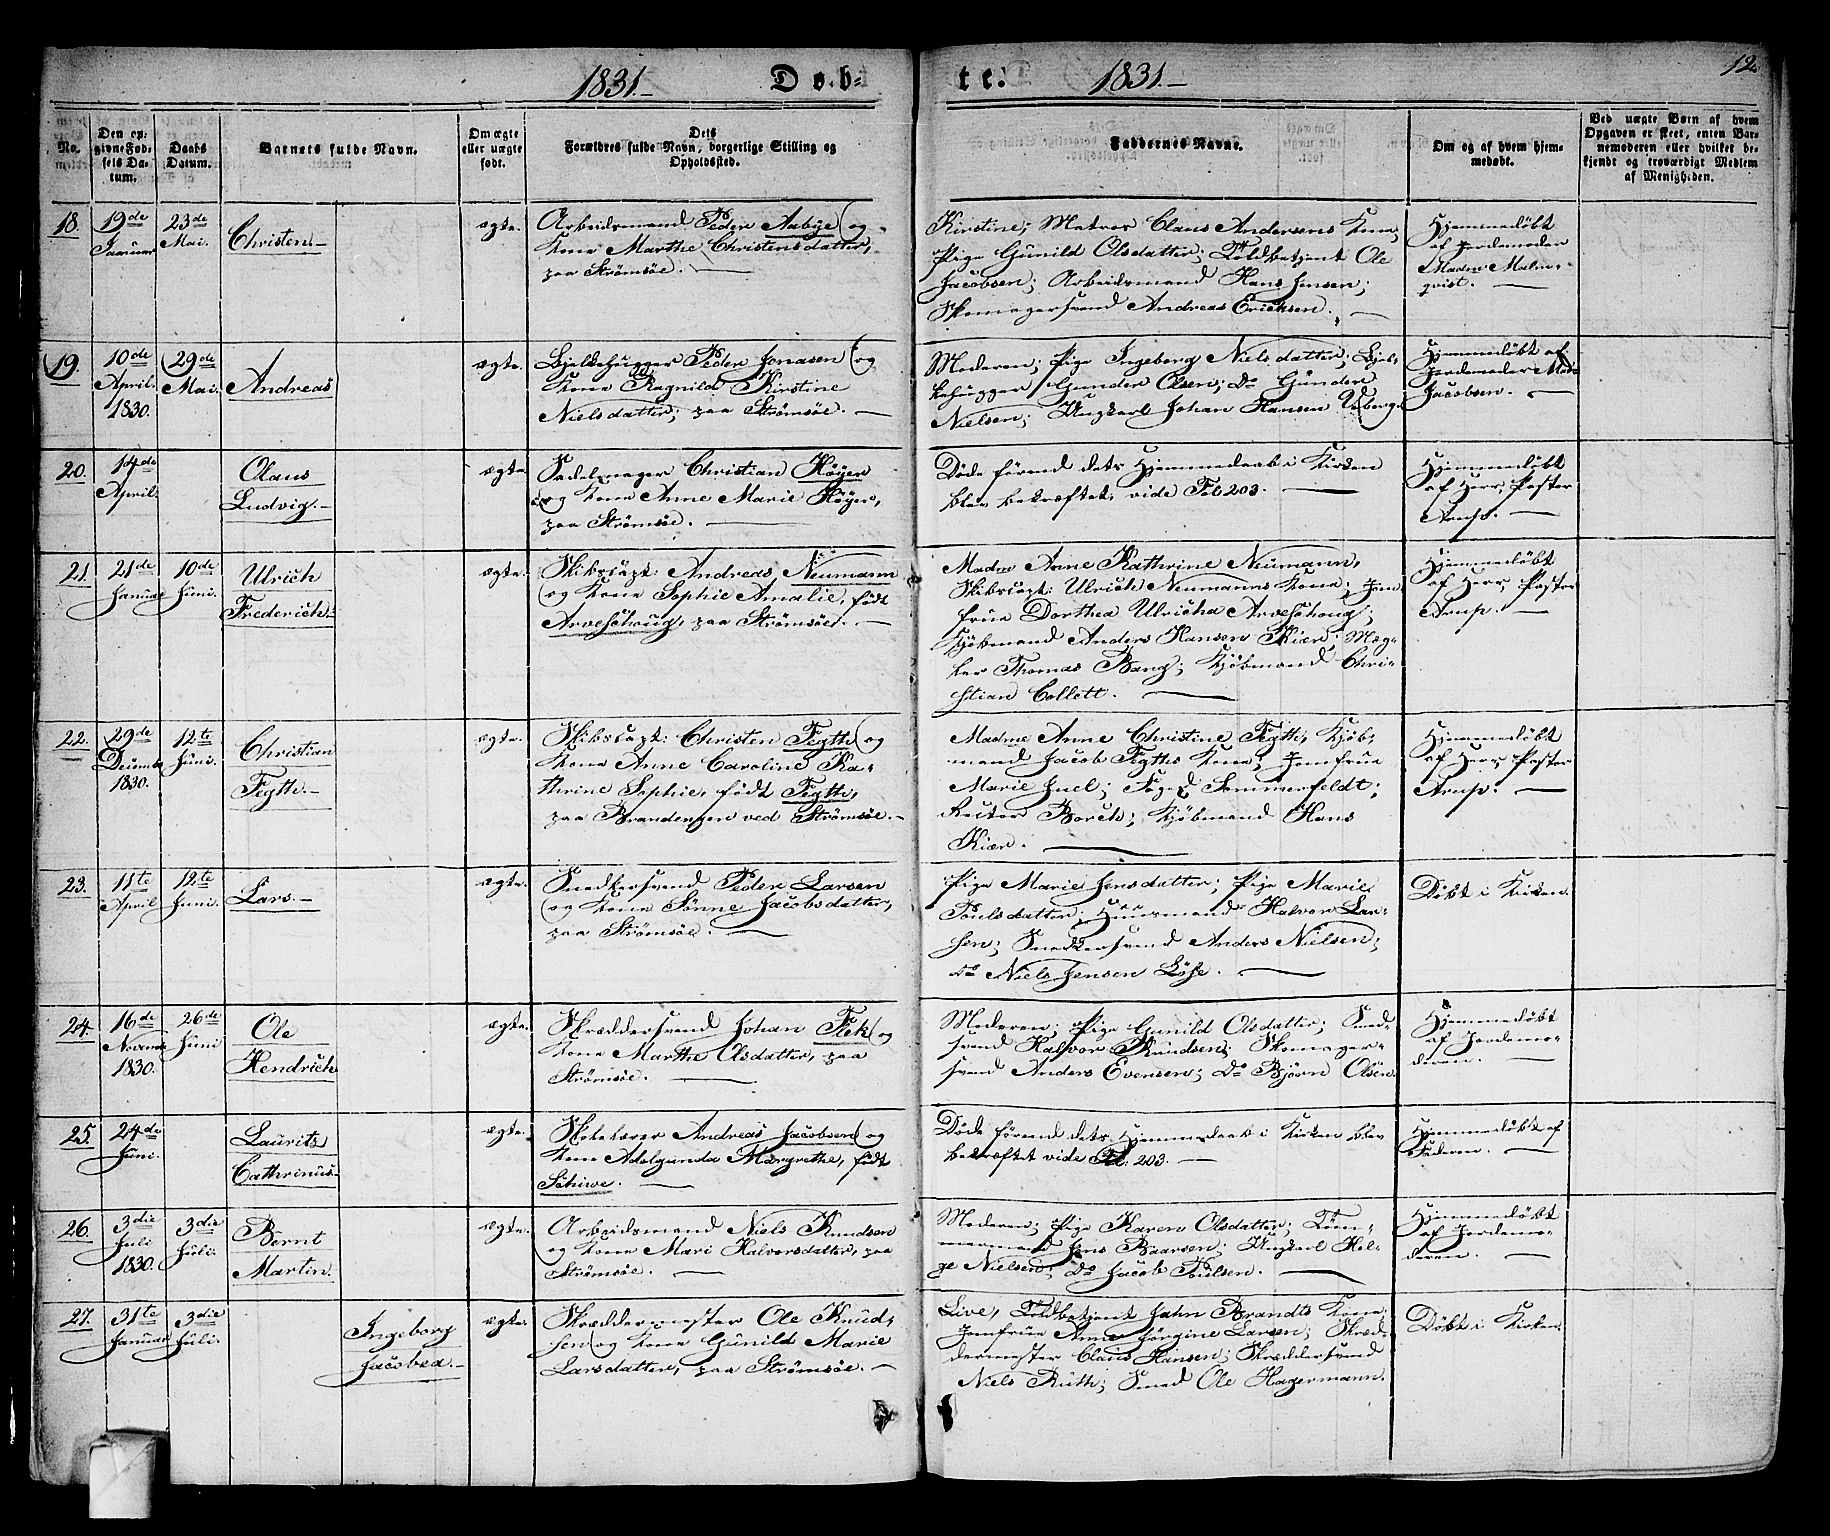 1831.- Døb=
te. 1831.- 12.
No.
Den op=
givne Fød=
sels Da=
tum.
Daabs
Datum.
Barnets fulde Navn.
Om ægte
eller uægte
født.
Dets
Forældres fulde Navn, borgerlige Stilling og
Opholdssted.
Faddernes Navne.
Om og af hvem hjem=
medøbt.
Ved uægte Børn af hvem
Opgaven er skeet, enten Bar=
nemoderen eller hvilket be=
kjendt og troværdigt Medlem
af Menigheden.
18.
19de
Januar
23de
Mai.
Christen.-
ægte.
Arbeidsmand Peder Aabye og
Kone Marthe Christensdatter,
paa Strømsøe. —
Kirstine, Matros Claus Andersens Kone,
Pige Gunild Olsdatter; Toldbetjent Ole
Jacobsen; Arbeidsmand Hans Jensen;
Skomagersvend Andreas Ericksen. —
Hjemmedøbt
af Jordemoder
Madm Malm=
qvist. —
19.
10de
April.
1830.
29de
Mai.
Andreas
ægte.
Bjelkehugger Peder Jonasen og
Kone Ragnild Kirstine
Nielsdatter; paa Strømsøe. —
Moderen; Pige Ingeborg Nielsdatter; Bjel=
kehugger Gunder Olsen; Do Gunder
Nielsen; Ungkarl Johan Hansen
Hjemmedøbt af
Jordemoder Mad=
Jacobsen. —
20.
14de
April
Olaus
Ludvig.-
ægte.
Sadelmager Christian Høyer
og Kone Anne Marie Høyer,
paa Strømsøe. —
Døde førend dets Hjemmedaab i Kirken
blev bekræftet, vide Fol 203. —
Hjemmedøbt
af Herr Pastor
Arup. —
21.
21de
Januar
10de
Juni.
Ulrich
Frederich.-
ægte.
Skibscapt: Andreas Neumann
og Kone Sophie Amalie, født
Arveschoug, paa Strømsøe. —
Madm Anne Kathrine Neumann,
Skibscapt: Ulrich Neumanns Kone; Jom=
frue Dorthea Ulricha Arveschoug;
Kjøbmand Anders Hansen Kiær; Mæg=
ler Thomas Bang; Kjøbmand Chri=
stian Collett. —
Hjemmedøbt
af Herr Pastor
Arup. —
22.
29de
Decembr
1830.
12te
Juni.
Christian
Fegth.-
ægte.
Skibscapt: Christen Fegth og
Kone Anne Caroline Ka=
thrine Sophie, født Fegth,
paa Brandengen ved Strømsøe. -
Madme Anne Christine Fegth, Kjøb=
mand Jacob Fegths Kone; Jomfrue
Marie Juel; Foged Sommerfeldt;
Borch; Kjøbmand Hans
Kiær. —
Hjemmedøbt
af Herr Pastor
Arup. —
23.
11te
April
12te
Juni.
Lars.-
ægte.
Snedkersvend Peder Larsen
og Kone Sønne Jacobsdatter,
paa Strømsøe. —
Pige Marie Jensdatter; Pige Marie
Poulsdatter; Huusmand Halvor Lar=
sen; Snedkersvend Anders Nielsen;
Do Niels Jensen Løse. —
Døbt i Kirken.
24.
16de
Novembr
1830.
26de
Juni
Ole
Hendrich
ægte.
Skræddersvend Johan Fek og
Kone Marthe Olsdatter, paa
Strømsøe. —
Moderen; Pige Gunild Olsdatter; Smed=
svend Halvor Knudsen; Skomager=
svend Anders Evensen; Do Bjørn Olsen.
Hjemmedøbt
af Jordemo=
deren. —
25.
24de
Juni.
Laurits
Cathrinus.-
ægte.
Skolelærer Andreas Jacobsen og
Kone Adelgunda Margrethe, født
Schiwe. —
Døde førend dets Hjemmedaab i Kirken blev
bekræftet vide Fol: 203. —
Hjemmedøbt af
Faderen. —
26.
3die
Juli
1830.
3die
Juli.
Bernt
Martin.
ægte.
Arbeidsmand Niels Knudsen
og Kone Mari Halvorsdatter, paa
Strømsøe. —
Moderen; Pige Karen Olsdatter; Tøm=
mermand Jens Baarsen; Ungkarl Hel=
ge Nielsen; Do Jacob Poulsen. —
Hjemmedøbt
af Jordemo=
deren. —
27.
31te
Januar
3die
Juli.
Ingeborg
Jacobea.-
ægte.
Skræddermester Ole Knud=
sen og Kone Gunild Marie
Larsdatter, paa Strømsøe. —
Live, Toldbetjent Jahn Brandts Kone;
Jomfrue Anne Jørgine Larsen; Skræd=
dermester Claus Hansen; Skræddersvend
Niels Ruth; Smed Ole Hagermann.
Døbt i Kirken.